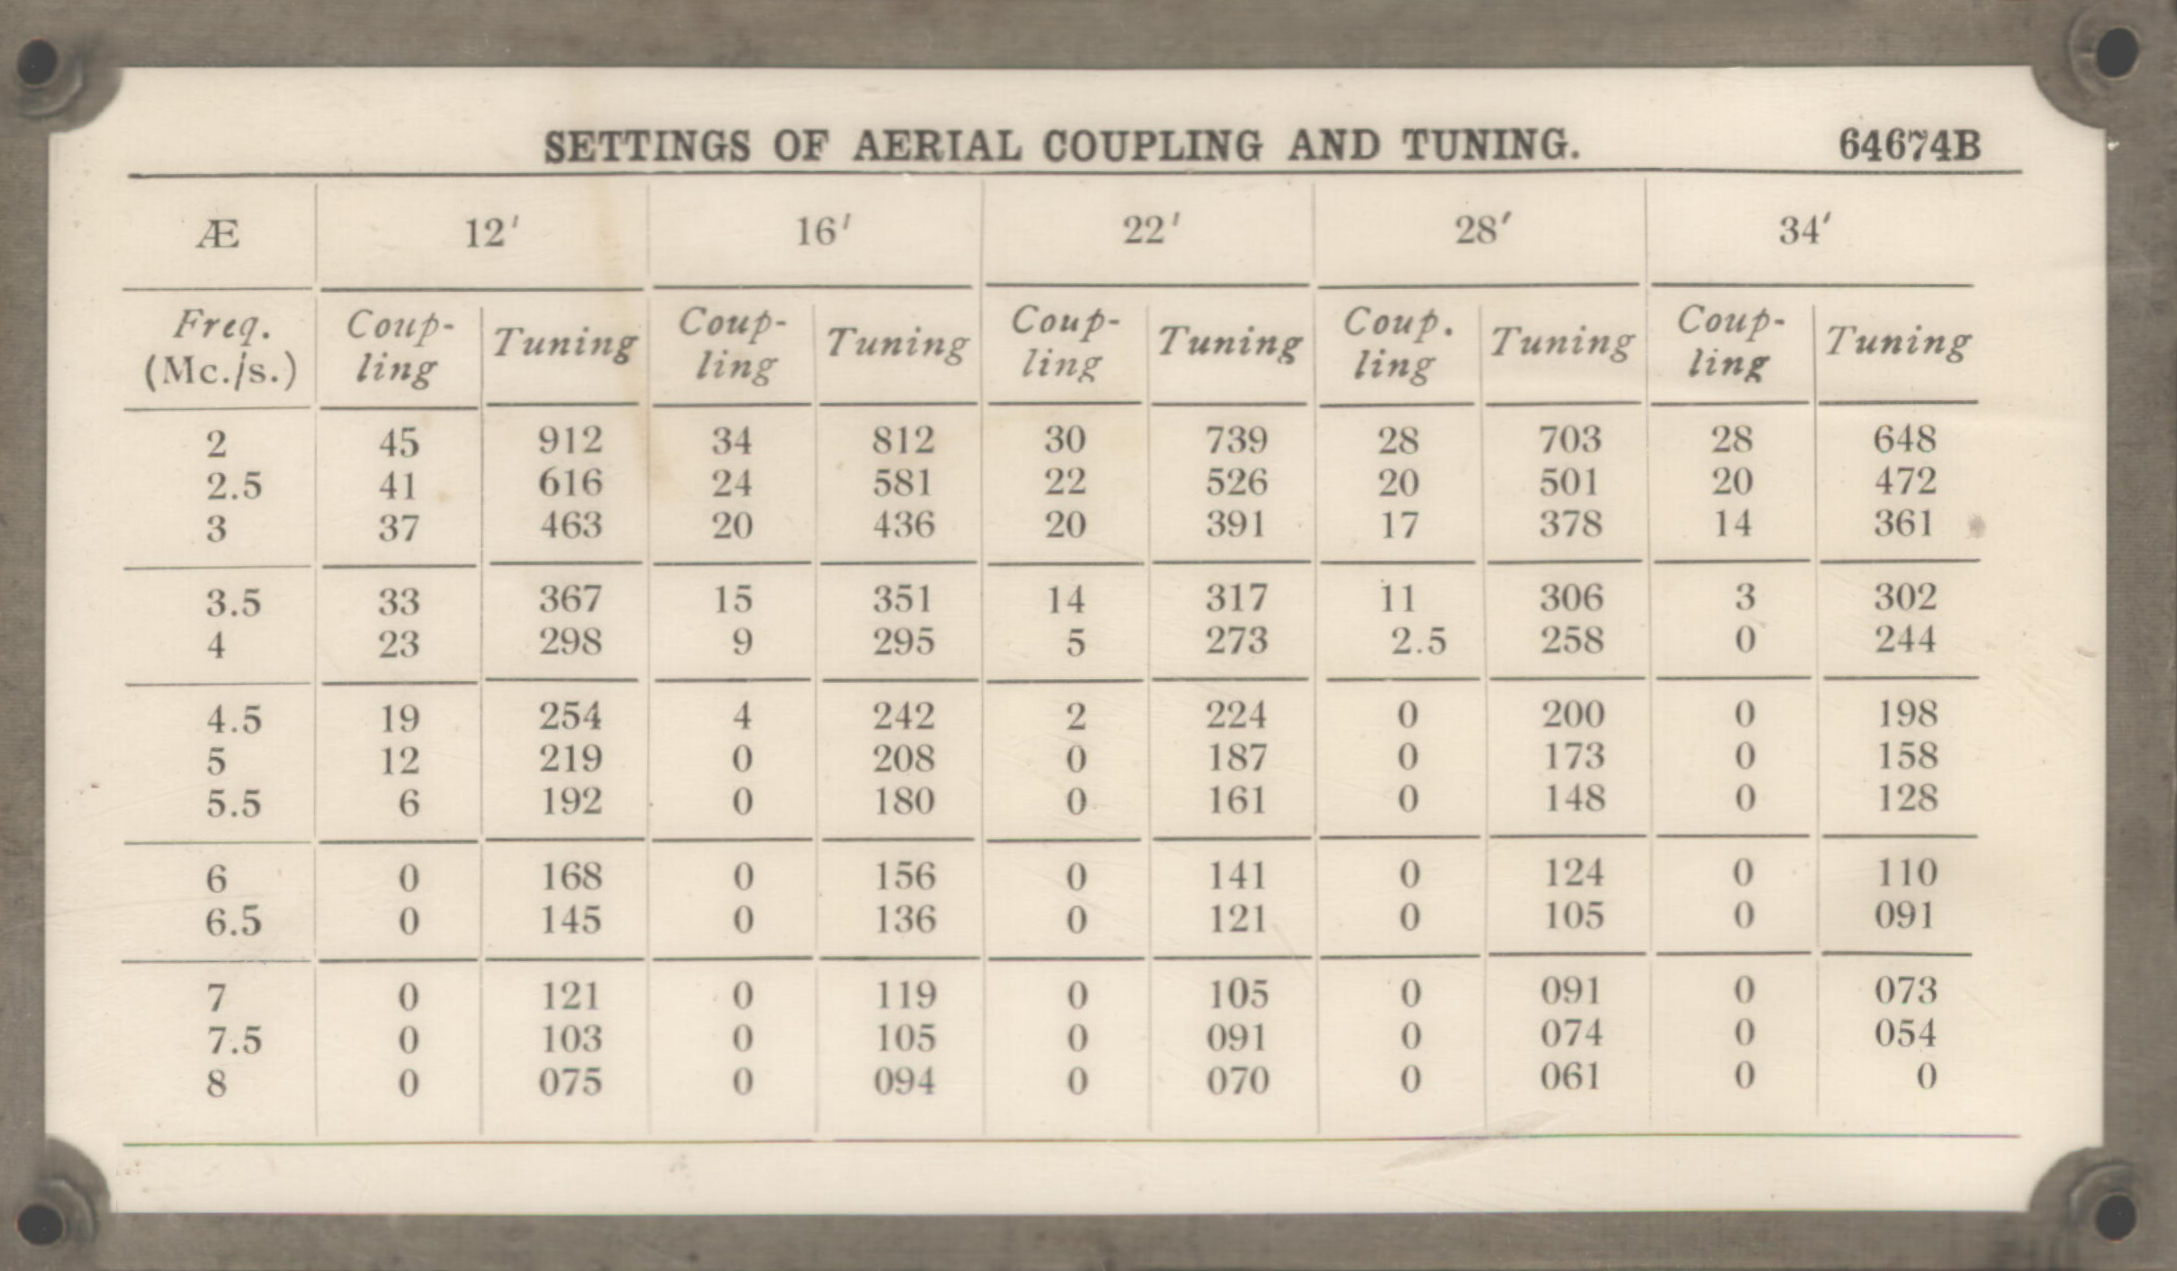 SETTINGS OF AERIAL COUPLING AND TUNING. 64674B
Æ 12' 16' 22' 28' 34'
Freq. Coup- Tuning Coup- Tuning Coup- Tuning Coup. Tuning Coup- Tuning
(Mc./s.) ling ling ling ling ling
2 45 912 34 812 30 739 28 703 28 648
2.5 41 616 24 581 22 526 20 501 20 472
3 37 463 20 436 20 391 17 378 14 361
3.5 33 367 15 351 14 317 11 306 3 302
4 23 298 9 295 5 273 2.5 258 0 244
4.5 19 254 4 242 2 224 0 200 0 198
5 12 219 0 208 0 187 0 173 0 158
5.5 6 192 0 180 0 161 0 148 0 128
6 0 168 0 156 0 141 0 124 0 110
6.5 0 145 0 136 0 121 0 105 0 091
7 0 121 0 119 0 105 0 091 0 073
7.5 0 103 0 105 0 091 0 074 0 054
8 0 075 0 094 0 070 0 061 0 0